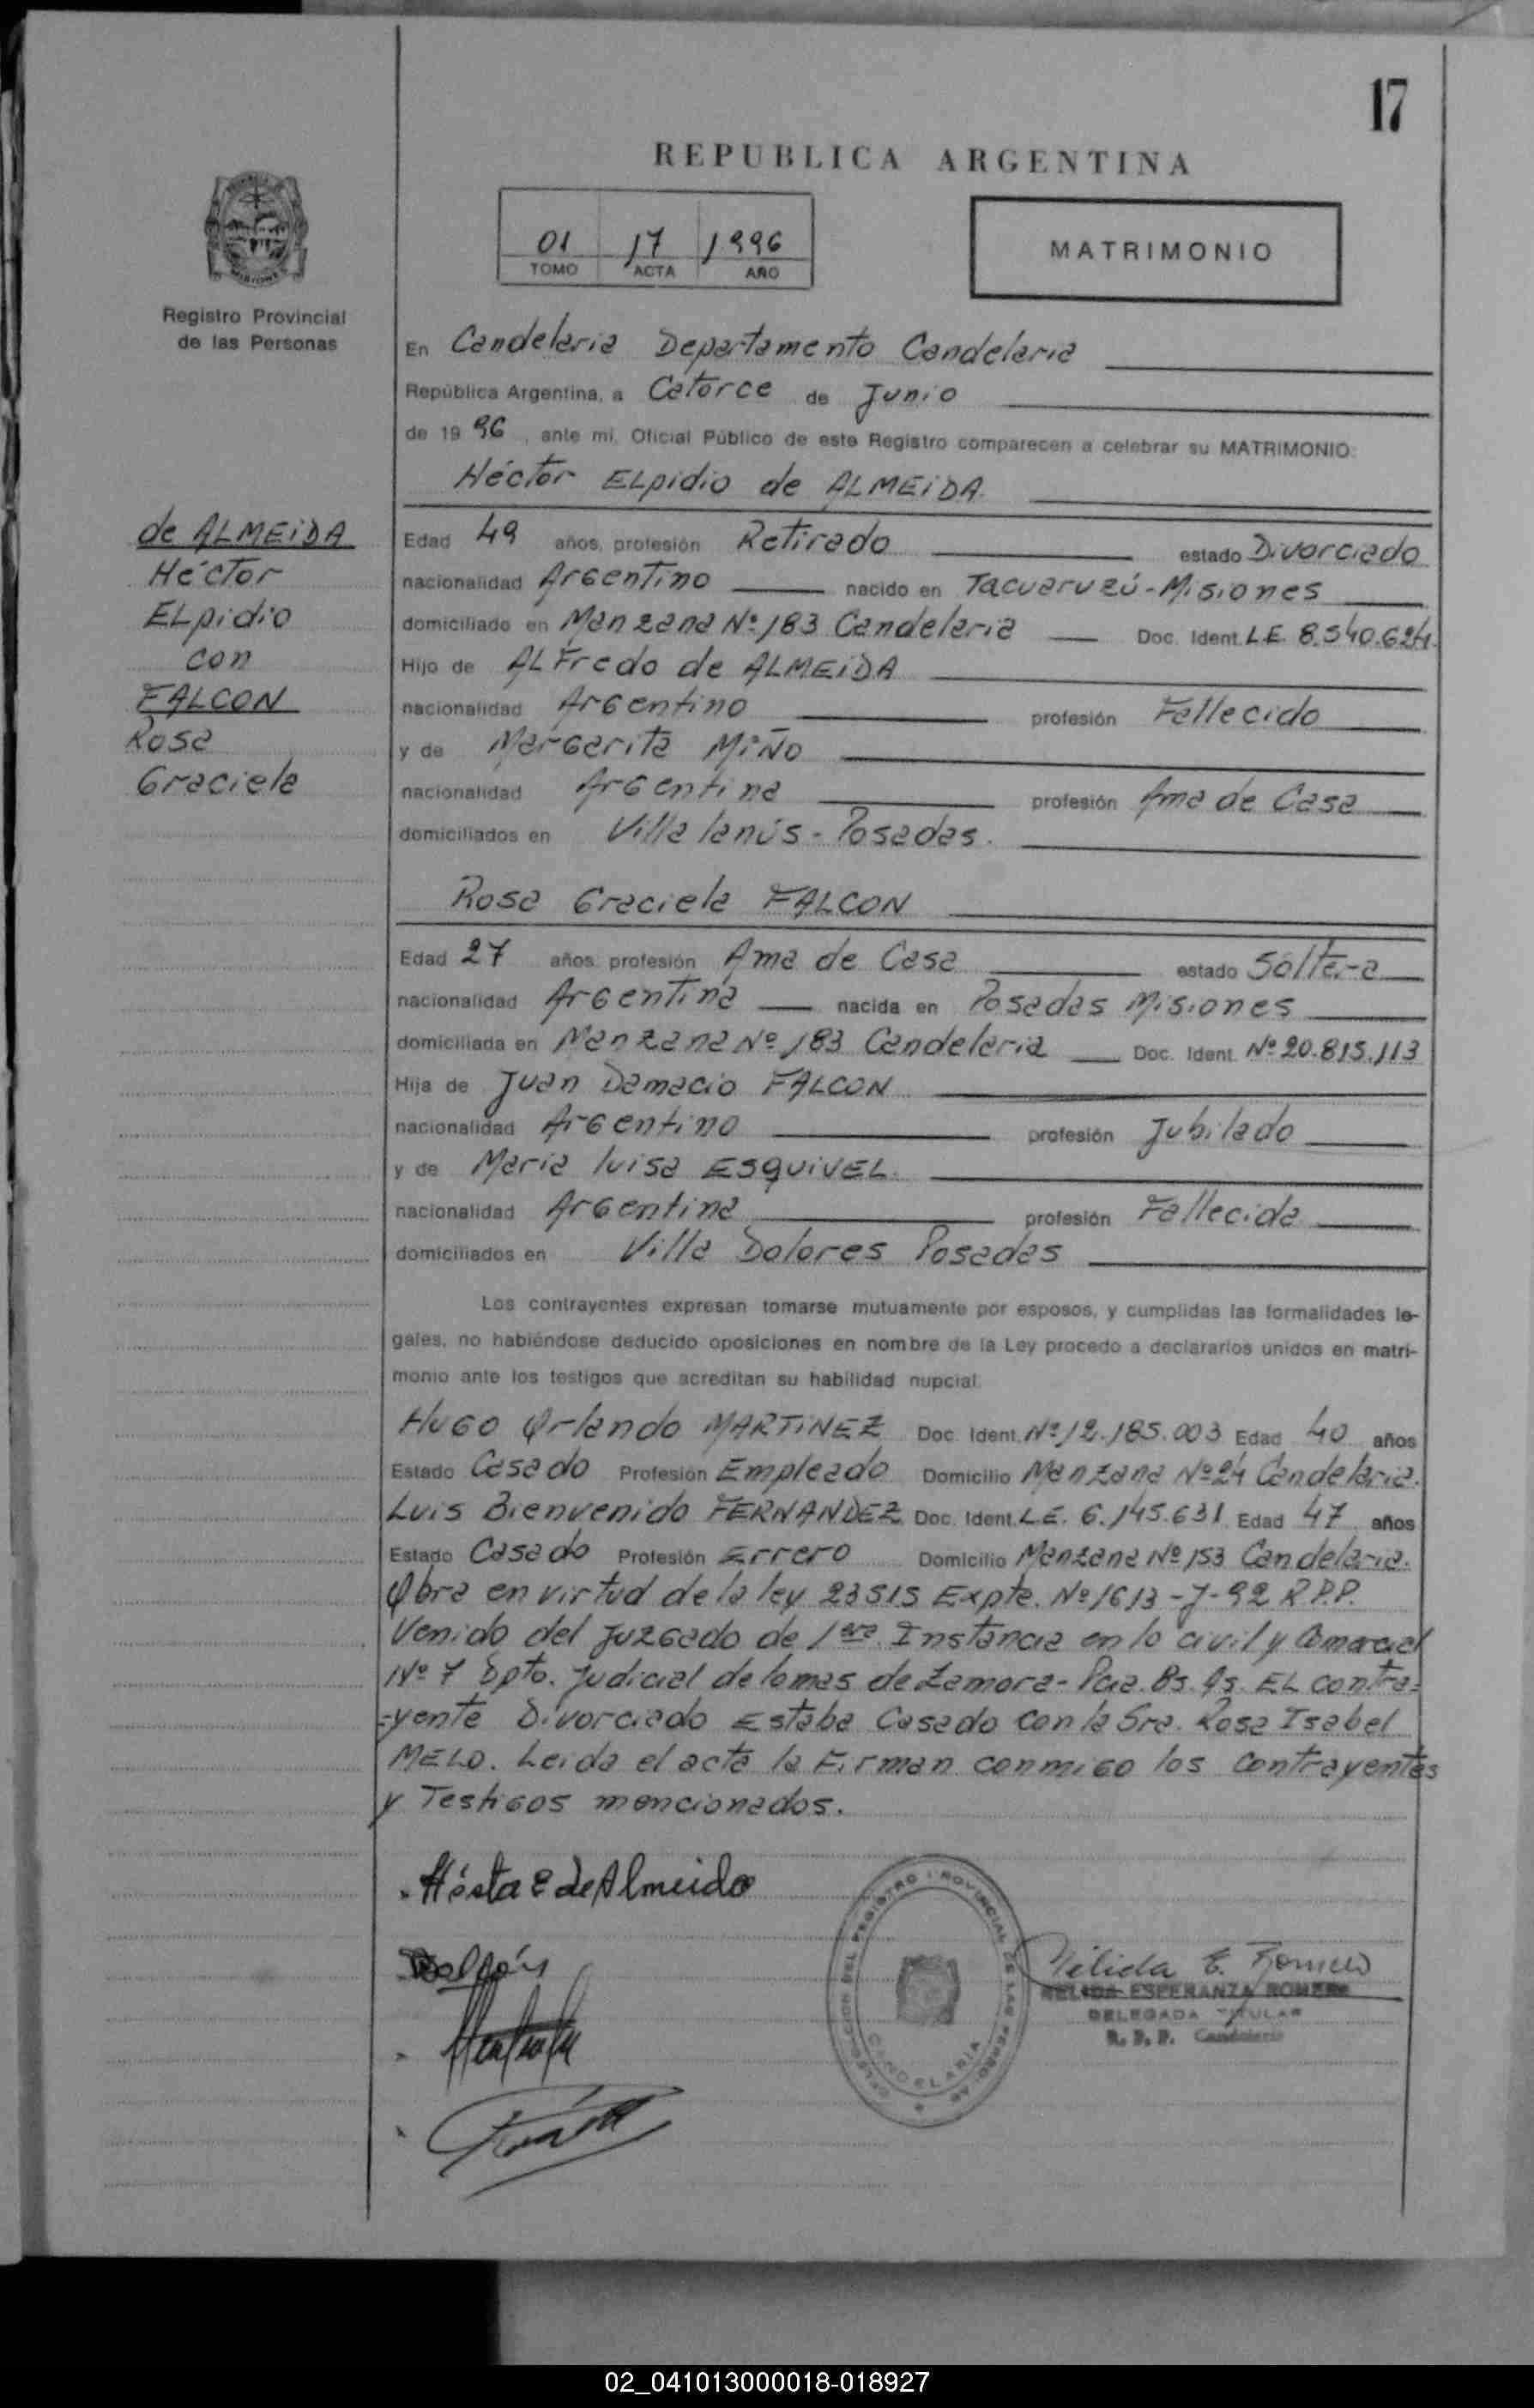 17
REPUBLICA ARGENTINA
01 17 1996
TOMO ACTA AÑO
MATRIMONIO
Registro Provincial
de las Personas
En Candelaria Departamento Candelaria
República Argentina, a Catorce de Junio
de 19 96, ante mí, Oficial Público de este Registro comparecen a celebrar su MATRIMONIO:
Héctor ELpidio de ALMEiDA.
de ALMEiDA
Héctor
ELpidio
con
FALCON
Rosa
Graciela
Edad 49 años, profesión Retirado estado Divorciado
nacionalidad Argentino nacido en Tacuaruzú - Misiones
domiciliado en Manzana Nº 183 Candelaria Doc. Ident. L.E. 8.540.624.
Hijo de ALFredo de ALMEiDA
nacionalidad Argentino profesión Fallecido
y de Margarita MiÑo
nacionalidad Argentina profesión Ama de Casa
domiciliados en Villa lanús - Posadas.
Rosa Graciela FALCON
Edad 27 años, profesión Ama de Casa estado Soltera
nacionalidad Argentina nacida en Posadas Misiones
domiciliada en Manzana Nº 183 Candelaria Doc. Ident. Nº 20.815.113
Hija de Juan Damacio FALCON
nacionalidad Argentino profesión Jubilado
y de Maria luisa ESQUiVEL.
nacionalidad Argentina profesión Fallecida
domiciliados en Villa Dolores Posadas
Los contrayentes expresan tomarse mutuamente por esposos, y cumplidas las formalidades le-
gales, no habiéndose deducido oposiciones en nombre de la Ley procedo a declararlos unidos en matri-
monio ante los testigos que acreditan su habilidad nupcial.
Hugo Orlando MARTiNEZ Doc. Ident. Nº 12.185.003 Edad 40 años
Estado Casado Profesión Empleado Domicilio Manzana Nº 24 Candelaria.
Luis Bienvenido FERNANDEZ Doc. Ident. L.E. 6.145.631 Edad 47 años
Estado Casado Profesión Errero Domicilio Manzana Nº 153 Candelaria.
Obra en virtud de la ley 23515 Expte. Nº 1613-J-92 R.P.P.
Venido del Juzgado de 1era. Instancia en lo civil y Comercial
Nº 7 Dpto. Judicial de lomas de Zamora - Pcia. Bs. As. EL contra=
=yente Divorciado Estaba Casado con la Sra. Rosa Isabel
MELO. Leida el acta la Firman conmigo los Contrayentes
y Testigos mencionados.
DELEGACION DEL REGISTRO PROVINCIAL DE LAS PERSONAS
CANDELARIA
Nélida E. Romero
NELIDA ESPERANZA ROMERO
DELEGADA TITULAR
R. P. P. Candelaria
02_041013000018-018927